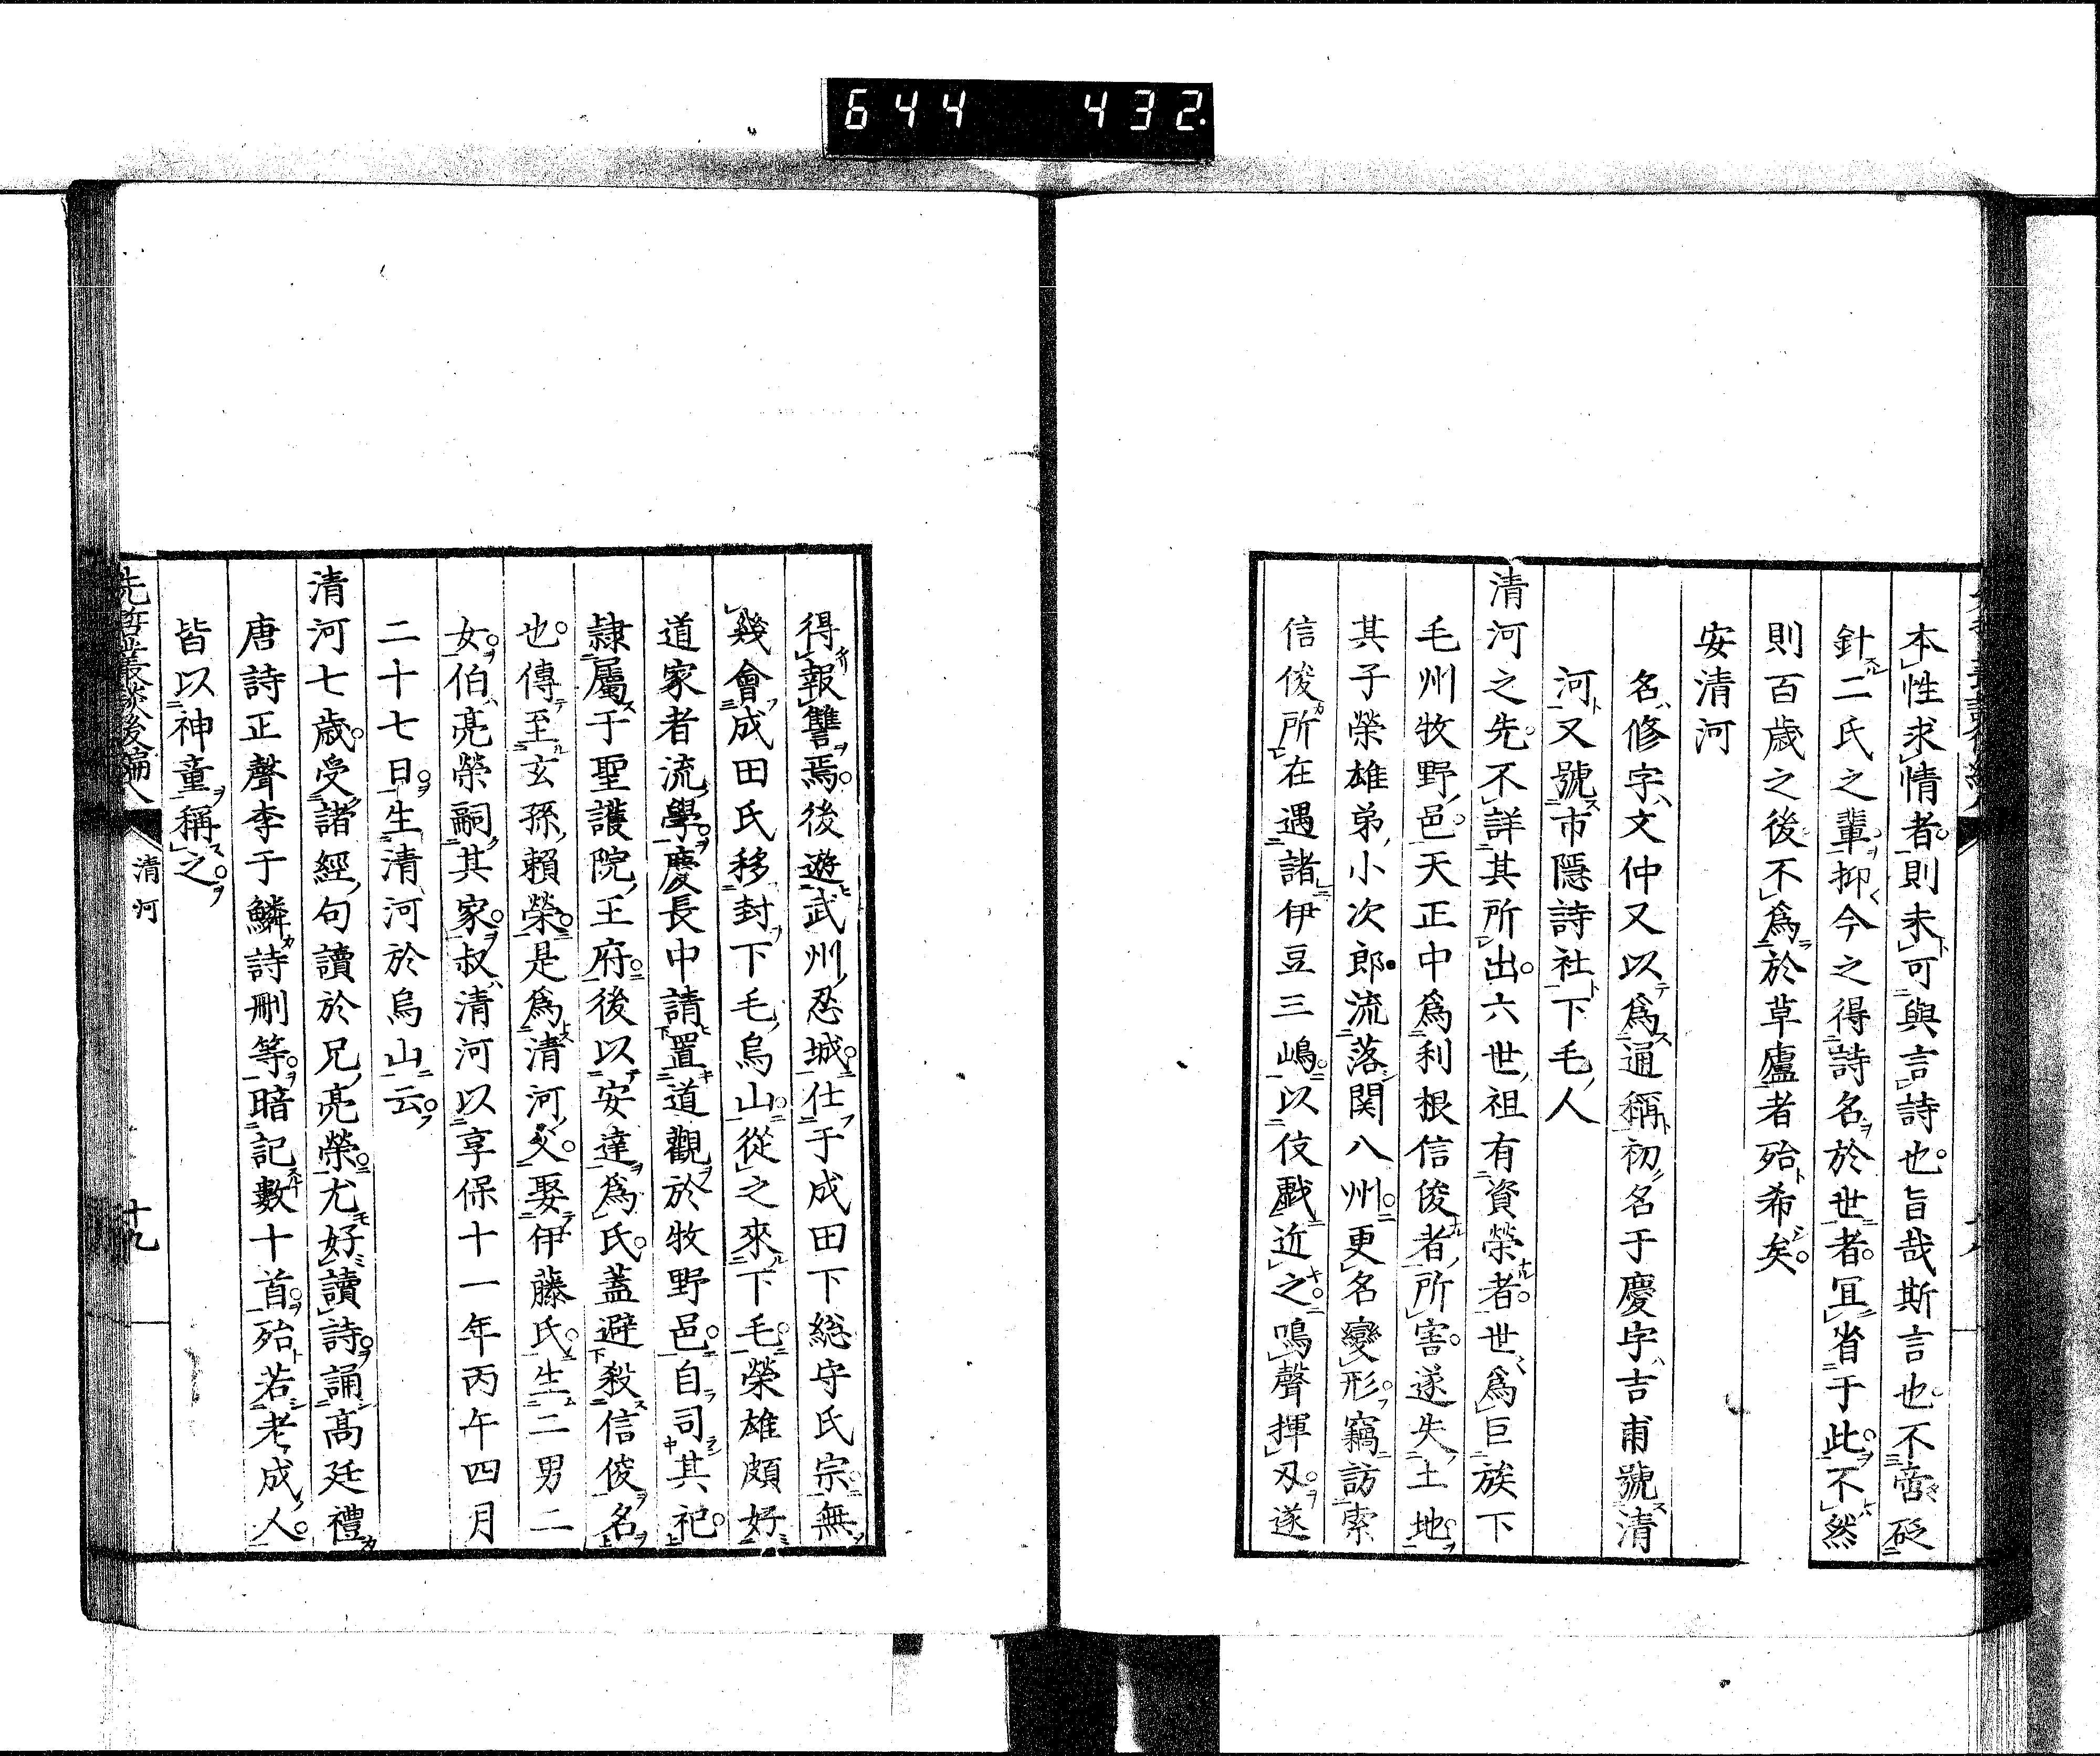 644 432.
本性求情者則未可與言詩也旨哉斯言也不啻砭
針二氏之輩抑今之得詩名於世者冝省于此不然
則百歳之後不爲於草廬者殆希矣
安清河
名修字文仲又以爲通稱初名于慶字吉甫號清
河又號市隱詩社下毛人
清河之先不詳其所出六世祖有資榮者世爲巨族下
毛州牧野邑天正中爲利根信俊者所害遂失土地
其子榮雄弟小次郎流落関八州更名變形竊訪索
信俊所在遇諸伊豆三嶋以伎戯近之鳴聲揮刄遂
得報讐焉後遊武州忍城仕于成田下総守氏宗無
幾會成田氏移封下毛烏山從之來下毛榮雄頗好
道家者流學慶長中請置道觀於牧野邑自司其祀
隷屬于聖護院王府後以安達爲氏蓋避殺信俊名
也傳至玄孫賴榮是爲清河父娶伊藤氏生二男二
女伯亮榮嗣其家叔清河以享保十一年丙午四月
二十七日生清河於烏山云
清河七歳受諸經句讀於兄亮榮尤好讀詩誦高廷禮
唐詩正聲李于鱗詩刪等暗記數十首殆若老成人
皆以神童稱之
先哲叢談後編八 清河 十九